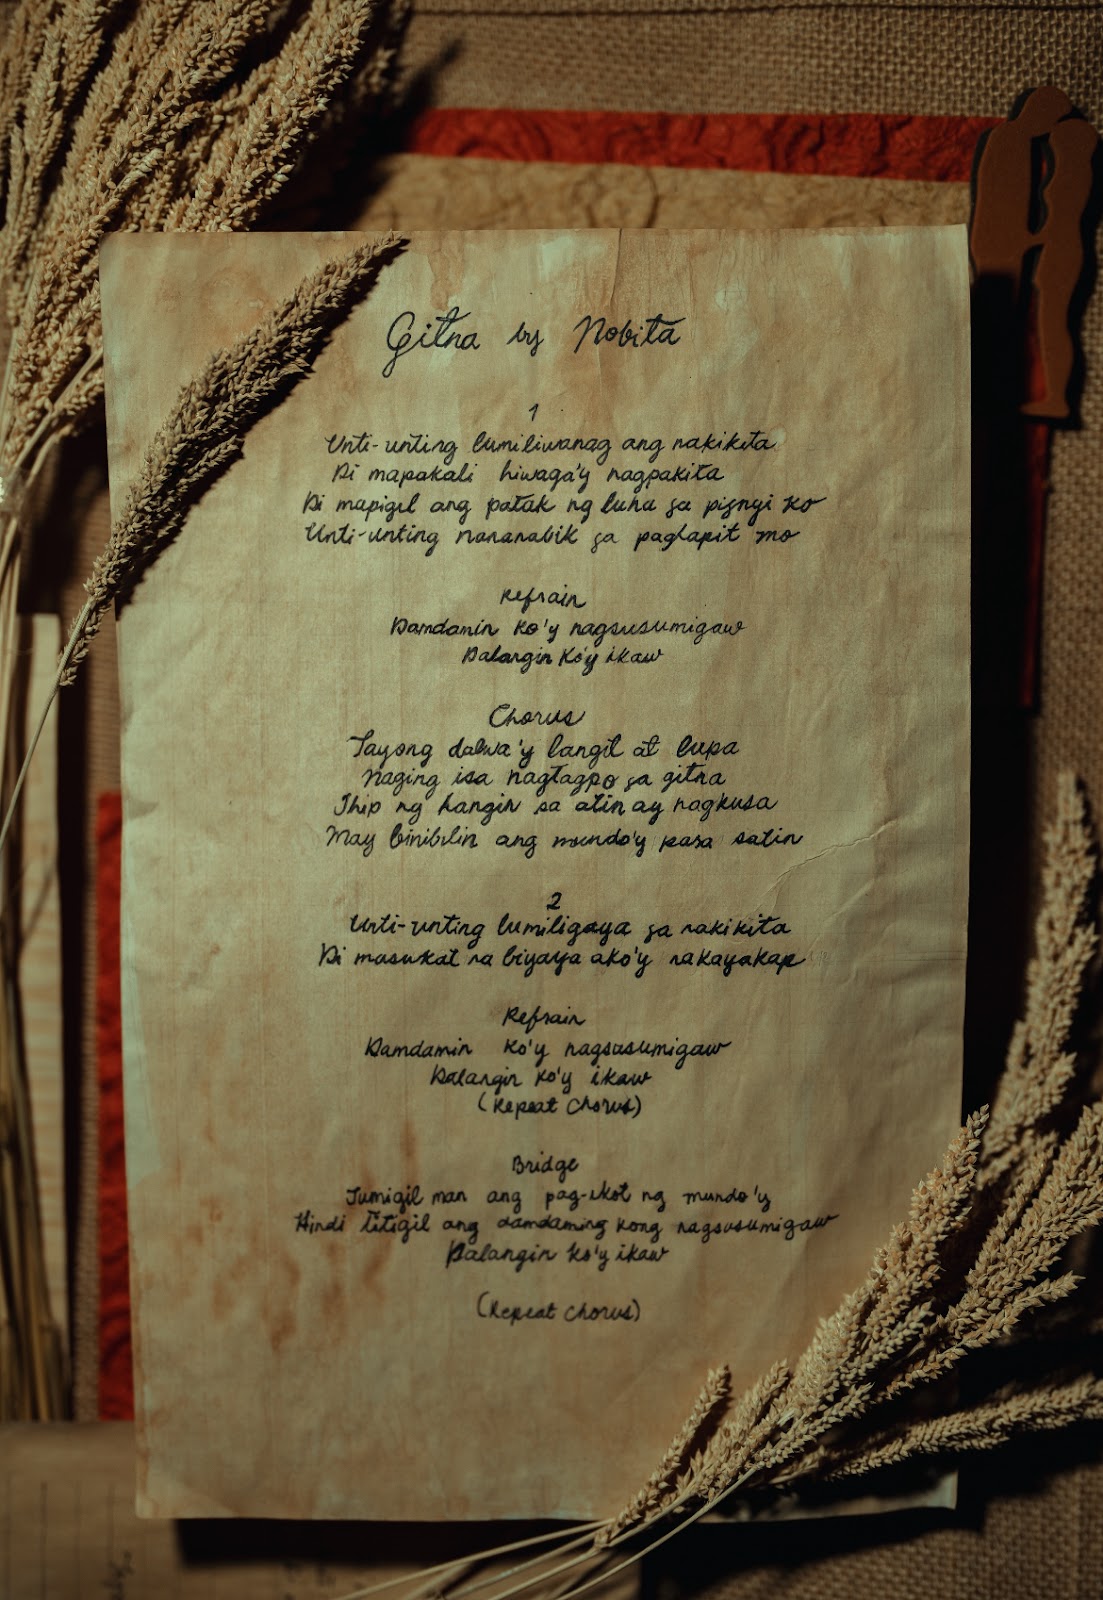 Gitna by Nobita
1
Unti-unting lumiliwanag ang nakikita
Di mapakali hiwaga'y nagpakita
Di mapigil ang patak ng luha sa pisnyi ko
Unti-unting nananabik sa paglapit mo
Refrain
Damdamin ko'y nagsusumigaw
Dalangin ko'y ikaw
Chorus
Tayong dalwa'y langit at lupa
Naging isa nagtagpo sa gitna
Ihip ng hangin sa atin ay nagkusa
May binibilin ang mundo'y pasa satin
2
Unti-unting lumiligaya sa nakikita
Di masukat na biyaya ako'y nakayakap
Refrain
Damdamin ko'y nagsusumigaw
Dalangin ko'y ikaw
(Repeat Chorus)
Bridge
Tumigil man ang pag-ikot ng mundo'y
Hindi titigil ang damdaming kong nagsusumigaw
Dalangin ko'y ikaw
(Repeat Chorus)